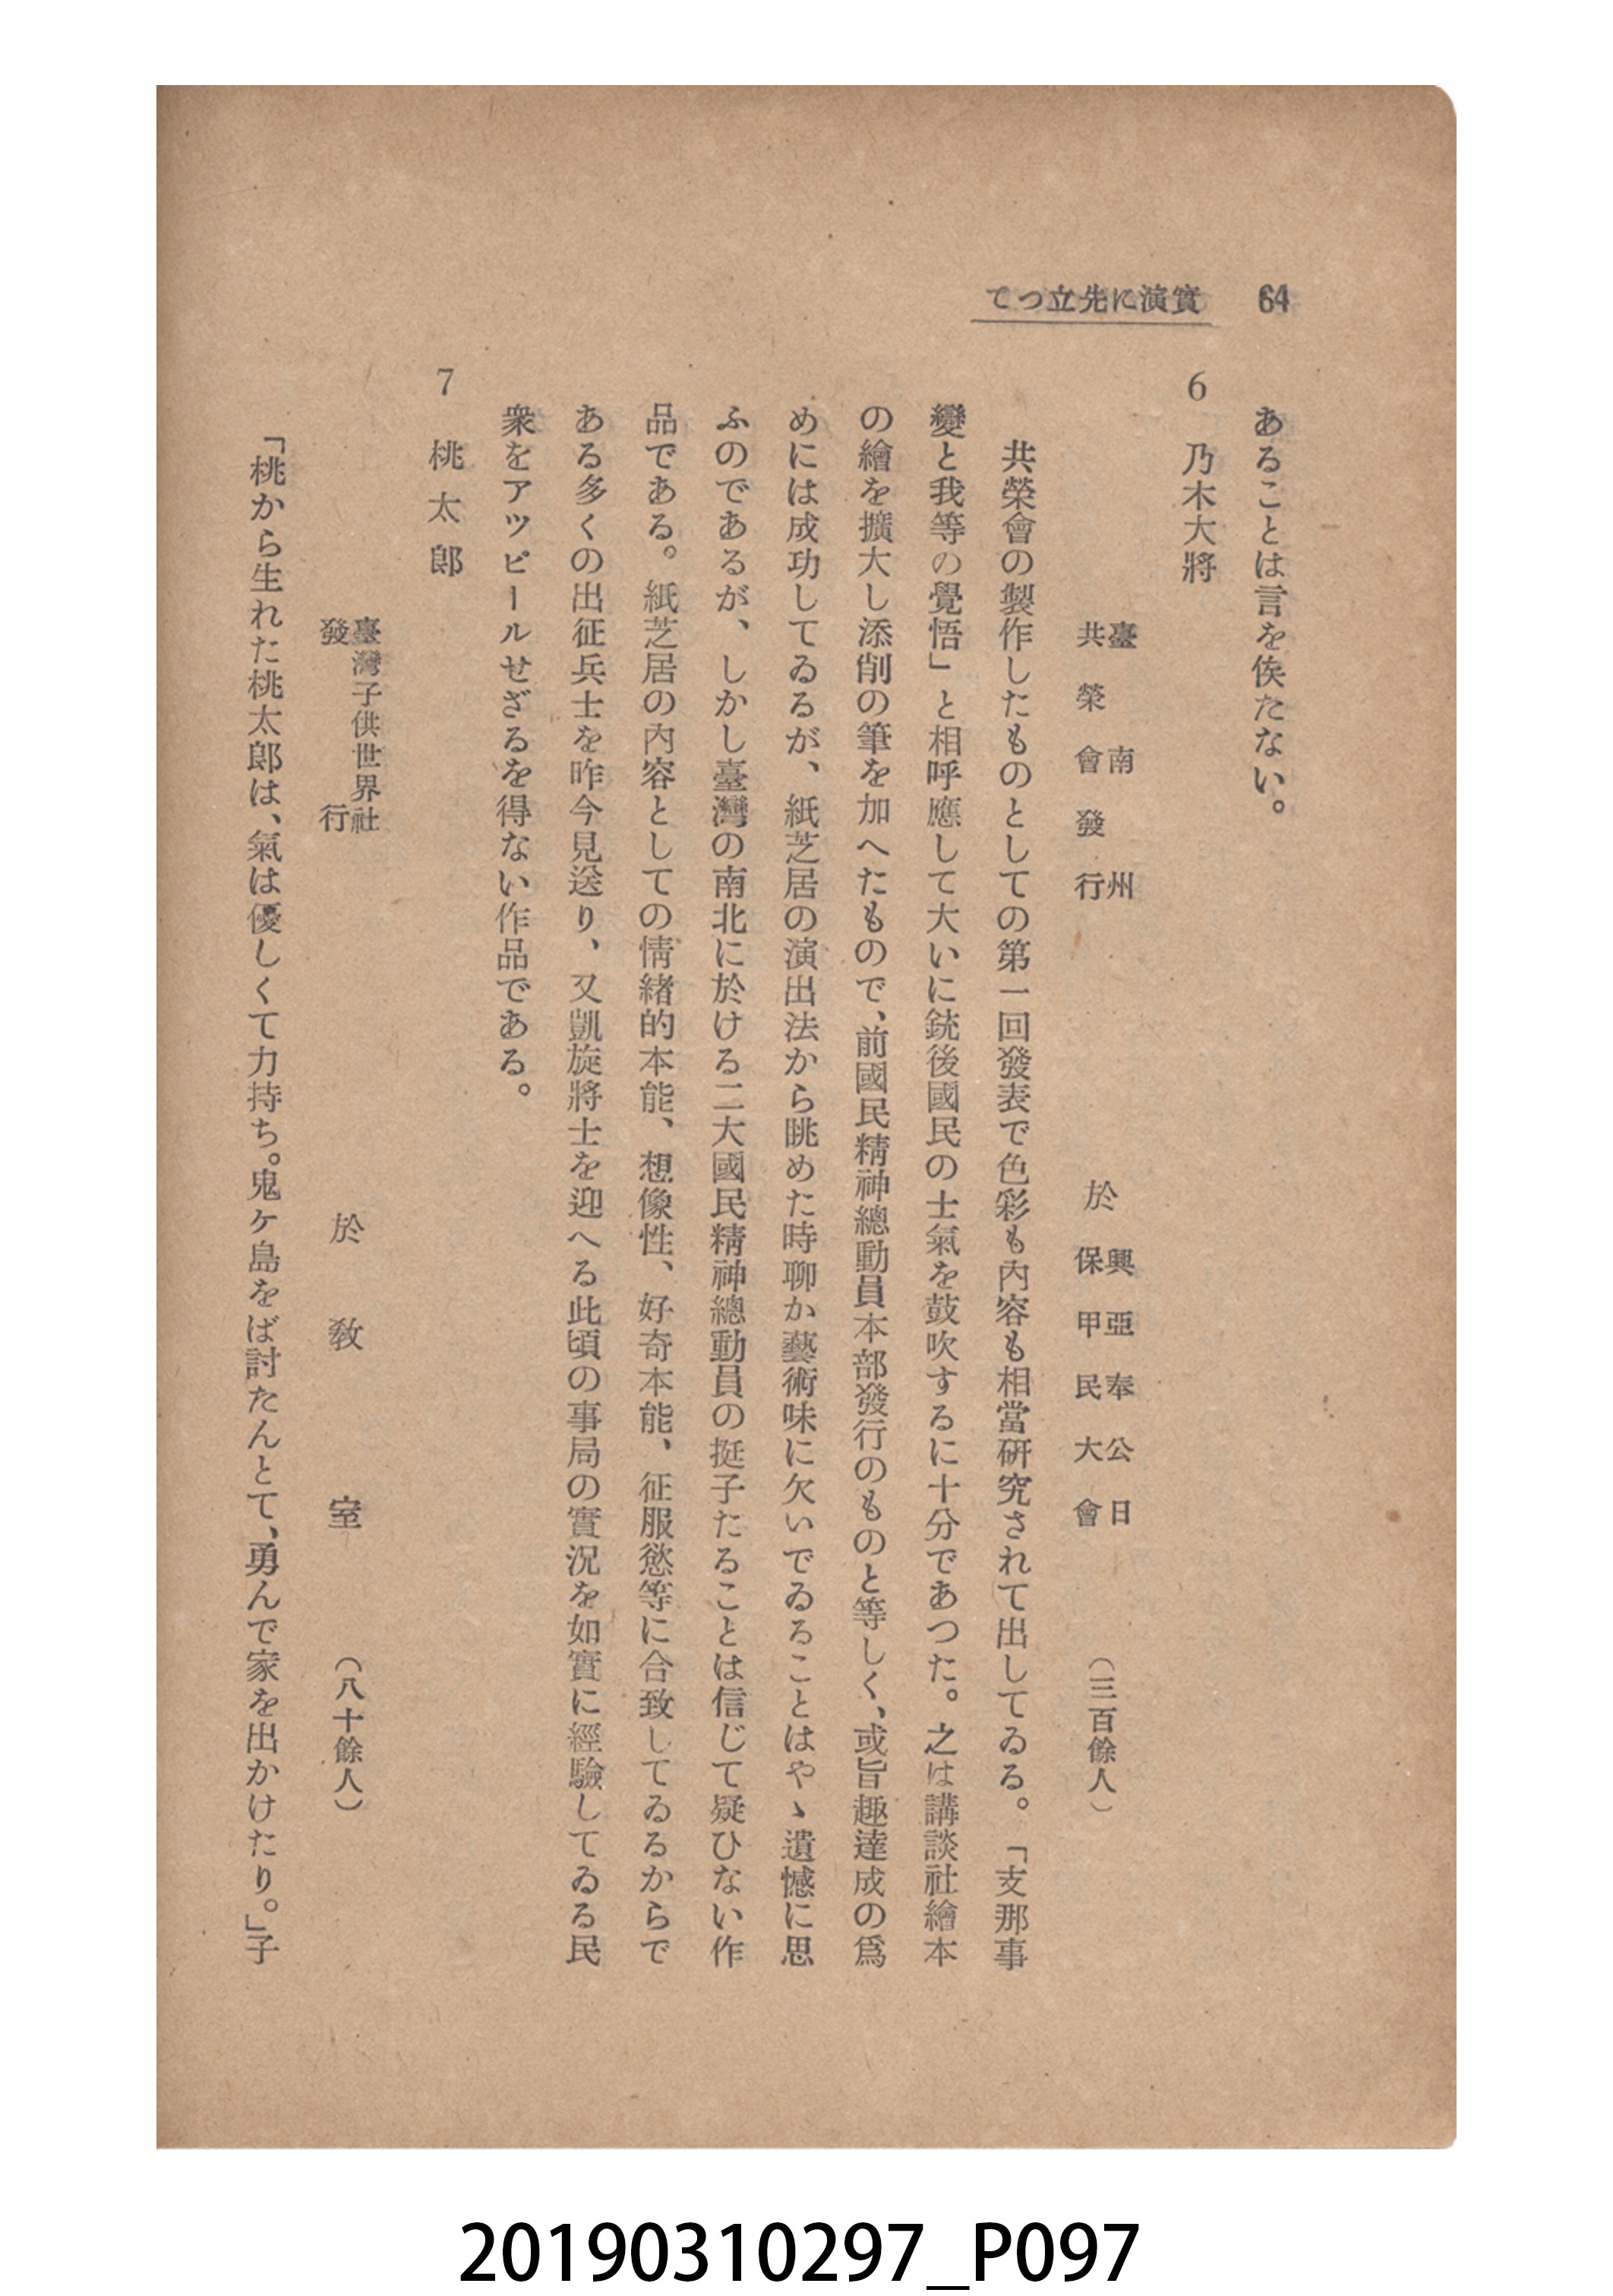 64
てつ立先に演實
あることは言を俟たない。
6 乃木大將
臺南州
共榮會發行
於
興亞奉公日
保甲民大會
(三百餘人)
共榮會の製作したものとしての第一回發表で色彩も內容も相當硏究されて出してゐる。「支那事
變と我等の覺悟」と相呼應して大いに銃後國民の士氣を鼓吹するに十分であつた。之は講談社繪本
の繪を擴大し添削の筆を加へたもので、前國民精神總動員本部發行のものと等しく、或旨趣達成の爲
めには成功してゐるが、紙芝居の演出法から眺めた時聊か藝術味に欠いでゐることはやゝ遺憾に思
ふのであるが、しかし臺灣の南北に於ける二大國民精神總動員の挺子たることは信じて疑ひない作
品である。紙芝居の內容としての情緒的本能、想像性、好奇本能、征服慾等に合致してゐるからで
ある多くの出征兵士を昨今見送り、又凱旋將士を迎へる此頃の事局の實況を如實に經驗してゐる民
衆をアツピールせざるを得ない作品である。
7 桃太郎
臺灣子供世界社
發行
於敎室
(八十餘人)
「桃から生れた桃太郎は、氣は優しくて力持ち。鬼ケ島をば討たんとて、勇んで家を出かけたり。」子
20190310297_P097